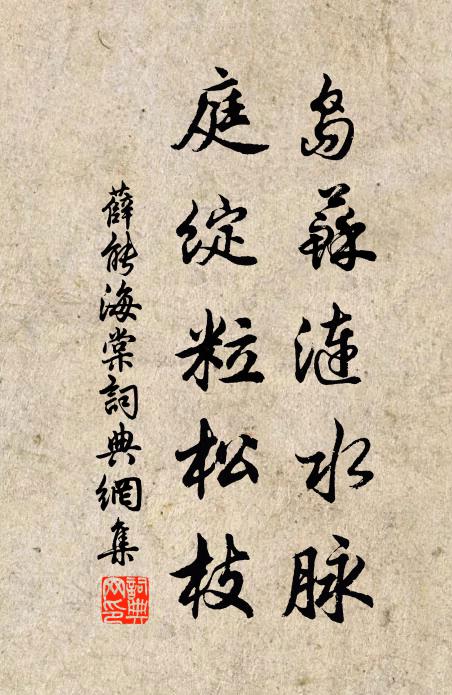 島蘇漣水脉
庭綻粒松枝
薛能海棠詞典網集
詞典
网印